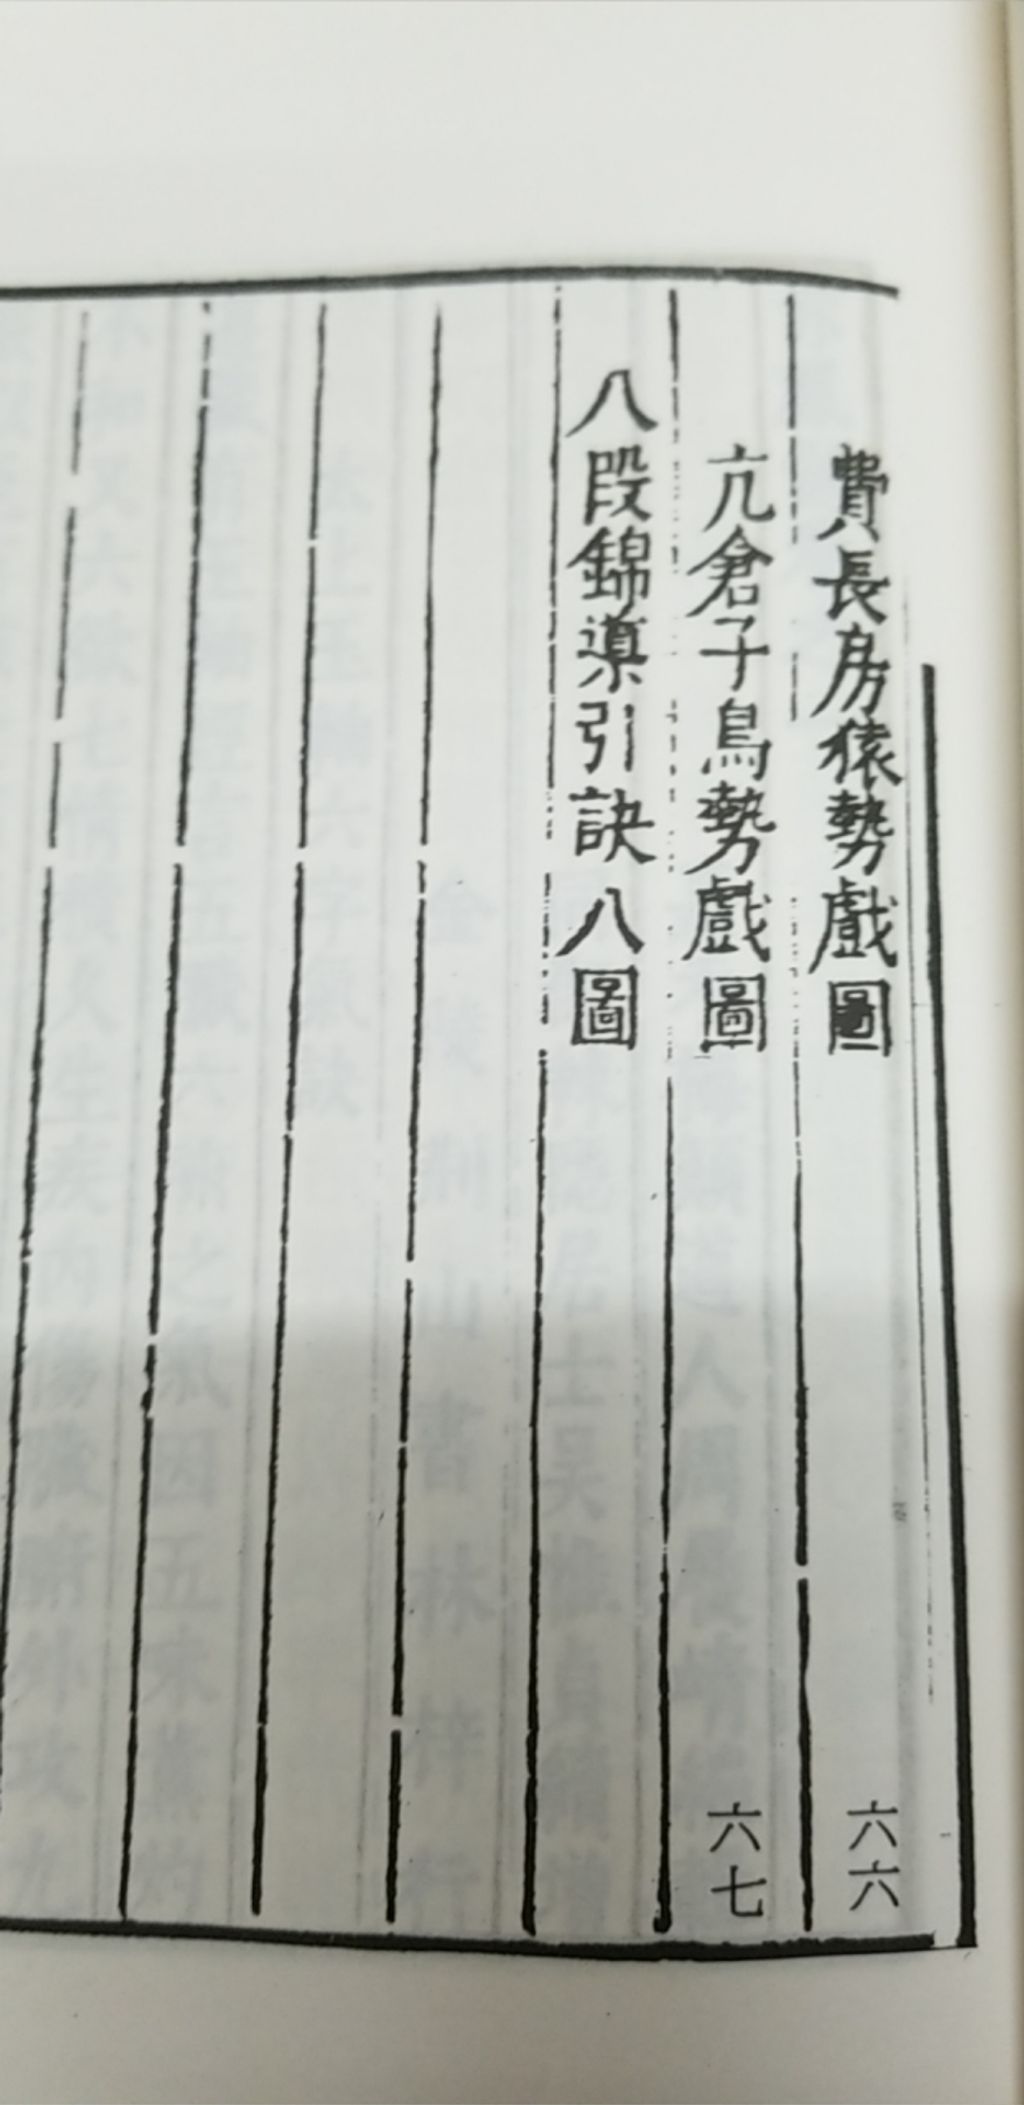 費長房猿勢戲圖 六六
亢倉子鳥勢戲圖 六七
八段錦導引訣八圖